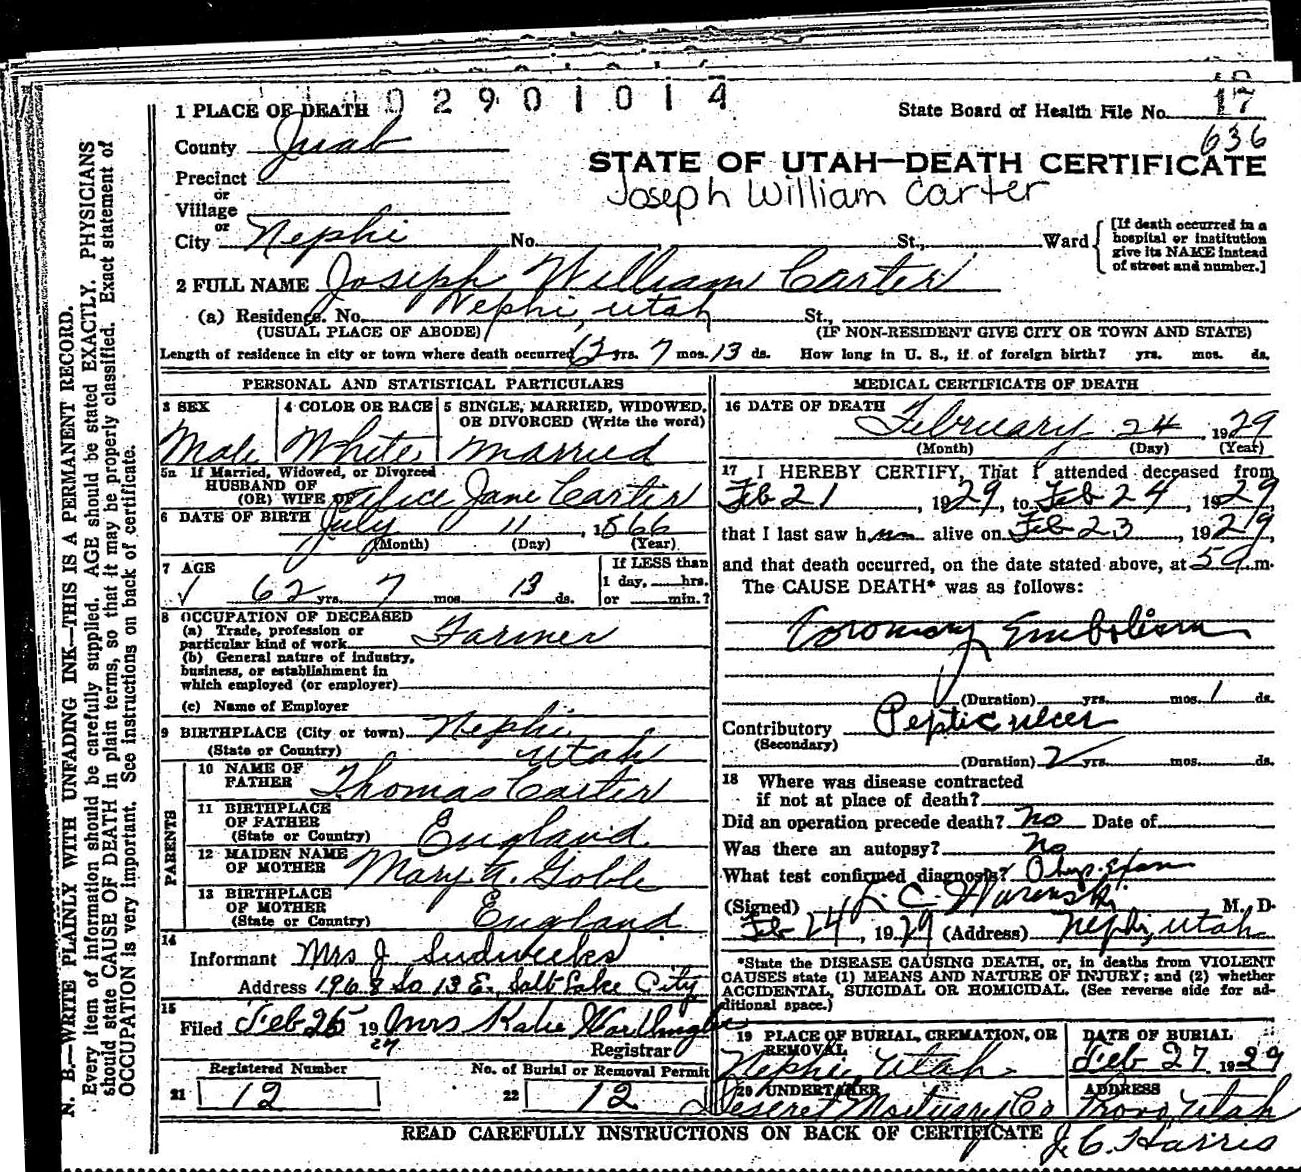 0 2 9 0 1 0 1 4
1 PLACE OF DEATH
State Board of Health File No. 17
636
County Juab
STATE OF UTAH—DEATH CERTIFICATE
Precinct
Joseph William Carter
or
Village
or
City Nephi No. St., Ward
[If death occurred in a hospital or institution give its NAME instead of street and number.]
2 FULL NAME Joseph William Carter
(a) Residence. No. Nephi, Utah St.,
(USUAL PLACE OF ABODE) (IF NON-RESIDENT GIVE CITY OR TOWN AND STATE)
Length of residence in city or town where death occurred 62 yrs. 7 mos. 13 ds. How long in U. S., if of foreign birth? yrs. mos. ds.
PERSONAL AND STATISTICAL PARTICULARS
3 SEX 4 COLOR OR RACE 5 SINGLE, MARRIED, WIDOWED, OR DIVORCED (Write the word)
Male White Married
5a If Married, Widowed, or Divorced
HUSBAND OF
(OR) WIFE OF Alice Jane Carter
6 DATE OF BIRTH July 11, 1866
(Month) (Day) (Year)
7 AGE
If LESS than
1 day, hrs.
62 yrs. 7 mos. 13 ds. or min.?
8 OCCUPATION OF DECEASED
(a) Trade, profession or
particular kind of work Farmer
(b) General nature of industry,
business, or establishment in
which employed (or employer)
(c) Name of Employer
9 BIRTHPLACE (City or town) Nephi
(State or Country) Utah
PARENTS
10 NAME OF FATHER Thomas Carter
11 BIRTHPLACE OF FATHER
(State or Country) England
12 MAIDEN NAME OF MOTHER Mary A. Goble
13 BIRTHPLACE OF MOTHER
(State or Country) England
14
Informant Mrs J Sudweeks
Address 1968 So 13 E. Salt Lake City
15
Filed Feb 25 1929 Mrs Katie
Registrar
Registered Number No. of Burial or Removal Permit
21 12 22 12
MEDICAL CERTIFICATE OF DEATH
16 DATE OF DEATH
February 24, 1929
(Month) (Day) (Year)
17 I HEREBY CERTIFY, That I attended deceased from
Feb 21, 1929, to Feb 24, 1929,
that I last saw him alive on Feb 23, 1929,
and that death occurred, on the date stated above, at 5 a m.
The CAUSE DEATH* was as follows:
Coronary Embolism
(Duration) yrs. mos. 1 ds.
Contributory Peptic ulcer
(Secondary)
(Duration) 2 yrs. mos. ds.
18 Where was disease contracted
if not at place of death?
Did an operation precede death? No Date of
Was there an autopsy? No
What test confirmed diagnosis?
(Signed) M. D.
Feb 24, 1929 (Address) Nephi, Utah
*State the DISEASE CAUSING DEATH, or, in deaths from VIOLENT
CAUSES state (1) MEANS AND NATURE OF INJURY; and (2) whether
ACCIDENTAL, SUICIDAL OR HOMICIDAL. (See reverse side for ad-
ditional space.)
19 PLACE OF BURIAL, CREMATION, OR REMOVAL DATE OF BURIAL
Nephi, Utah Feb 27 1929
20 UNDERTAKER ADDRESS
Deseret Mortuary Co Provo, Utah
READ CAREFULLY INSTRUCTIONS ON BACK OF CERTIFICATE
J. C. Harris
N. B.—WRITE PLAINLY WITH UNFADING INK—THIS IS A PERMANENT RECORD.
Every item of information should be carefully supplied. AGE should be stated EXACTLY. PHYSICIANS
should state CAUSE OF DEATH in plain terms, so that it may be properly classified. Exact statement of
OCCUPATION is very important. See instructions on back of certificate.